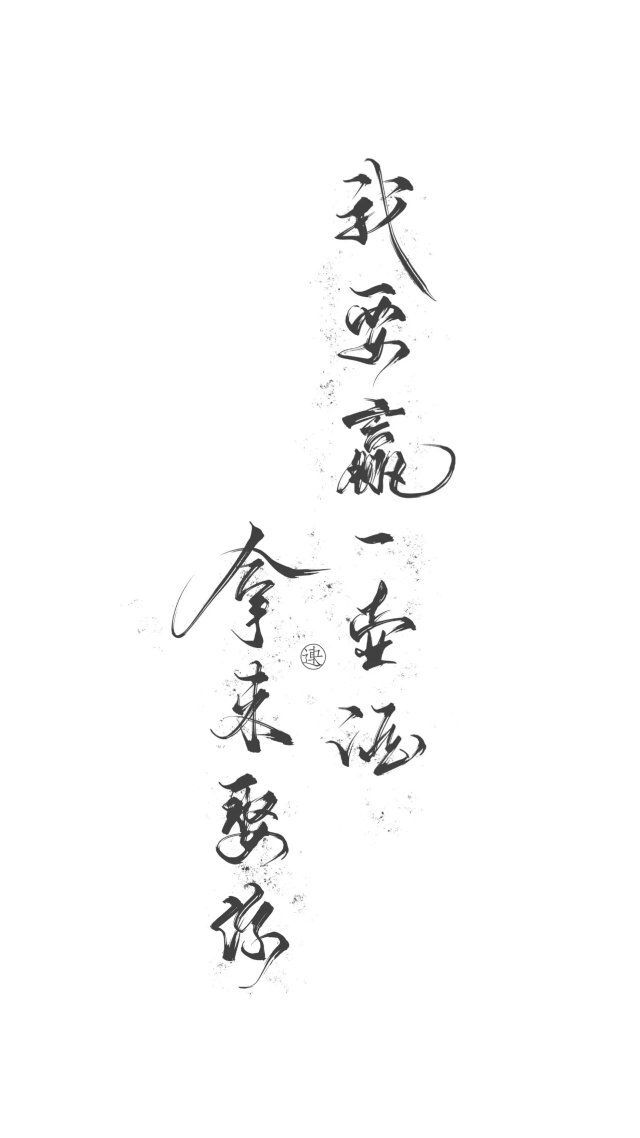 我要赢一壶酒
拿来娶你